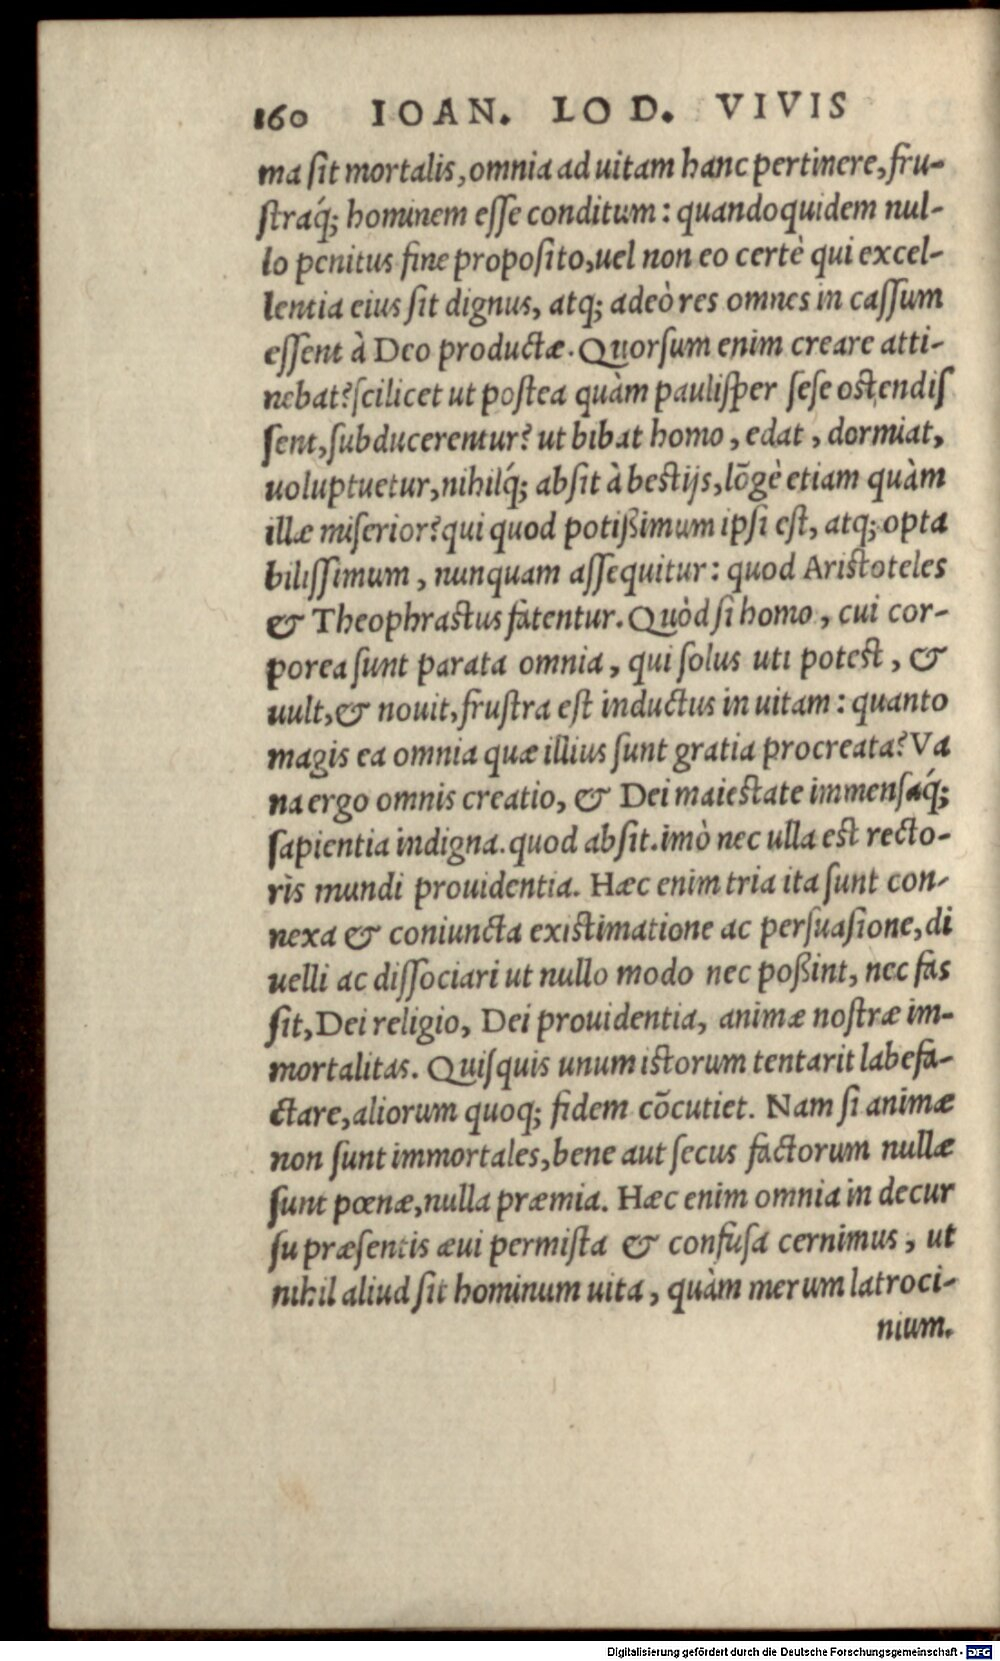 160 IOAN. LOD. VIVIS
ma ſit mortalis, omnia ad uitam hanc pertinere, fru-
ſtraq́; hominem eſſe conditum: quandoquidem nul-
lo penitus fine propoſito, uel non eo certè qui excel-
lentia eius ſit dignus, atq; adeò res omnes in caſſum
eſſent à Deo productæ. Quorſum enim creare atti-
nebat? ſcilicet ut poſtea quàm pauliſper ſeſe oſtendiſ
ſent, ſubducerentur? ut bibat homo, edat, dormiat,
uoluptuetur, nihilq́; abſit à beſtijs, lōgè etiam quàm
illæ miſerior? qui quod potißimum ipſi eſt, atq; opta
biliſſimum, nunquam aſſequitur: quod Ariſtoteles
& Theophraſtus fatentur. Quòd ſi homo, cui cor-
porea ſunt parata omnia, qui ſolus uti poteſt, &
uult, & nouit, fruſtra eſt inductus in uitam: quanto
magis ea omnia quæ illius ſunt gratia procreata? Va
na ergo omnis creatio, & Dei maieſtate immenſaq́;
ſapientia indigna. quod abſit. imò nec ulla eſt recto-
ris mundi prouidentia. Hæc enim tria ita ſunt con-
nexa & coniuncta exiſtimatione ac perſuaſione, di
uelli ac diſſociari ut nullo modo nec poßint, nec fas
ſit, Dei religio, Dei prouidentia, animæ noſtræ im-
mortalitas. Quiſquis unum iſtorum tentarit labefa-
ctare, aliorum quoq; fidem cōcutiet. Nam ſi animæ
non ſunt immortales, bene aut ſecus factorum nullæ
ſunt pœnæ, nulla præmia. Hæc enim omnia in decur
ſu præſentis æui permiſta & confuſa cernimus, ut
nihil aliud ſit hominum uita, quàm merum latroci-
nium.
Digitalisierung gefördert durch die Deutsche Forschungsgemeinschaft - DFG